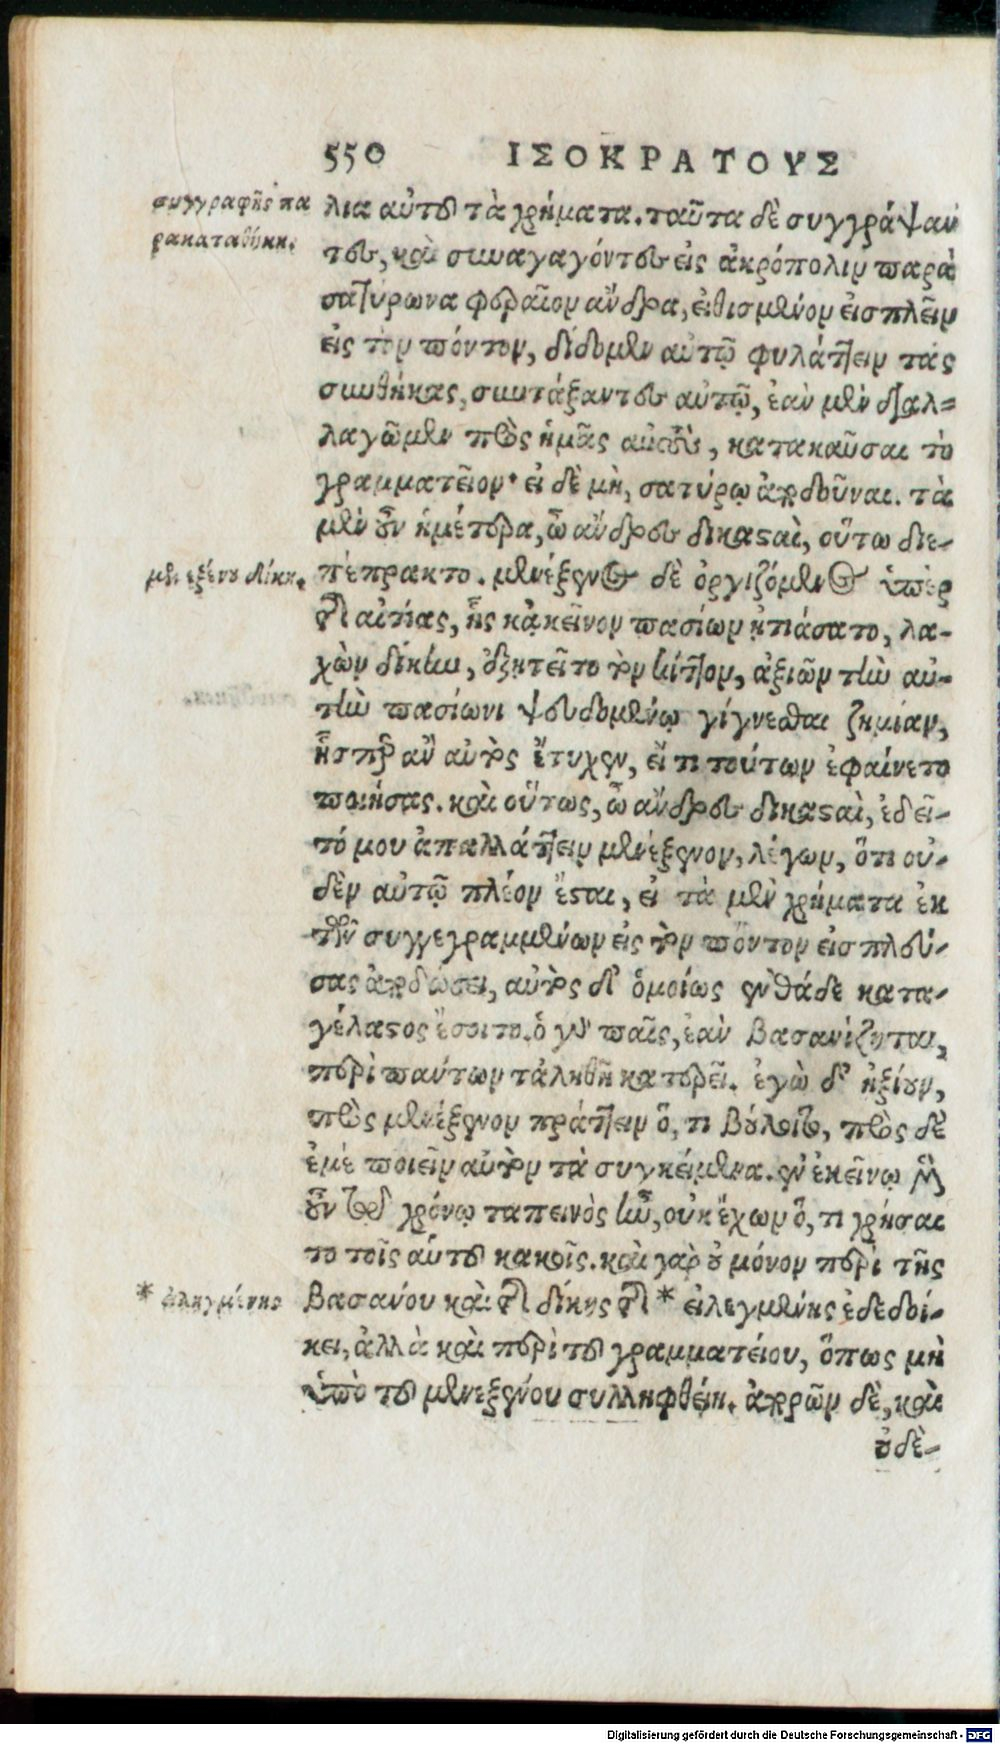 550 ΙΣΟΚΡΑΤΟΥΣ
συγγραφῆς πα
ρακαταθήκη.
λια αὐτοῦ τὰ χρήματα. ταῦτα δὲ συγγράψαν
τες, καὶ συναγαγόντες εἰς ἀκρόπολιν παρὰ
σατύρωνα φεραῖον ἄνδρα, εἰθισμένον εἰσπλεῖν
εἰς τὸν πόντον, δίδομεν αὐτῷ φυλάττειν τὰς
συνθήκας, συντάξαντες αὐτῷ, ἐὰν μὲν διαλ=
λαγῶμεν πρὸς ἡμᾶς αὐτοὺς, κατακαῦσαι τὸ
γραμματεῖον· εἰ δὲ μὴ, σατύρῳ ἀποδοῦναι. τὰ
μὲν οὖν ἡμέτερα, ὦ ἄνδρες δικασταὶ, οὕτω διε-
μενεξένου δίκη.
πέπρακτο. μενέξενος δὲ ὀργιζόμενος ὑπὲρ
τῆς αἰτίας, ἧς κἀκεῖνον πασίων ᾐτιάσατο, λα-
χὼν δίκην, ἐξῃτεῖτο τὸν κίττον, ἀξιῶν τὴν αὐ-
τὴν πασίωνι ψευδομένῳ γίγνεσθαι ζημίαν,
ἧσπερ ἂν αὐτὸς ἔτυχεν, εἴ τι τούτων ἐφαίνετο
ποιήσας. καὶ οὕτως, ὦ ἄνδρες δικασταὶ, ἐδεῖ-
τό μου ἀπαλλάττειν μενέξενον, λέγων, ὅτι οὐ-
δὲν αὐτῷ πλέον ἔσται, εἰ τὰ μὲν χρήματα ἐκ
τῶν συγγεγραμμένων εἰς τὸν πόντον εἰσπλεύ-
σας ἀποδώσει, αὐτὸς δ' ὁμοίως ἐνθάδε κατα-
γέλαστος ἔσοιτο. ὁ γὰρ παῖς, ἐὰν βασανίζηται,
περὶ πάντων τἀληθῆ κατερεῖ. ἐγὼ δ' ἠξίουν,
πρὸς μενέξενον πράττειν ὅ, τι βούλοιτο, πρὸς δὲ
ἐμὲ ποιεῖν αὐτὸν τὰ συγκείμενα. ἐν ἐκείνῳ μὲν
οὖν τῷ χρόνῳ ταπεινὸς ἦν, οὐκ ἔχων ὅ, τι χρήσαι
το τοῖς αὑτοῦ κακοῖς. καὶ γὰρ οὐ μόνον περὶ τῆς
* εἰληγμένης
βασάνου καὶ τῆς δίκης τῆς * εἰλεγμένης ἐδεδοί-
κει, ἀλλὰ καὶ περὶ τοῦ γραμματείου, ὅπως μὴ
ὑπὸ τοῦ μενεξένου συλληφθείη. ἀπορῶν δὲ, καὶ
οὐδε-
Digitalisierung gefördert durch die Deutsche Forschungsgemeinschaft - DFG